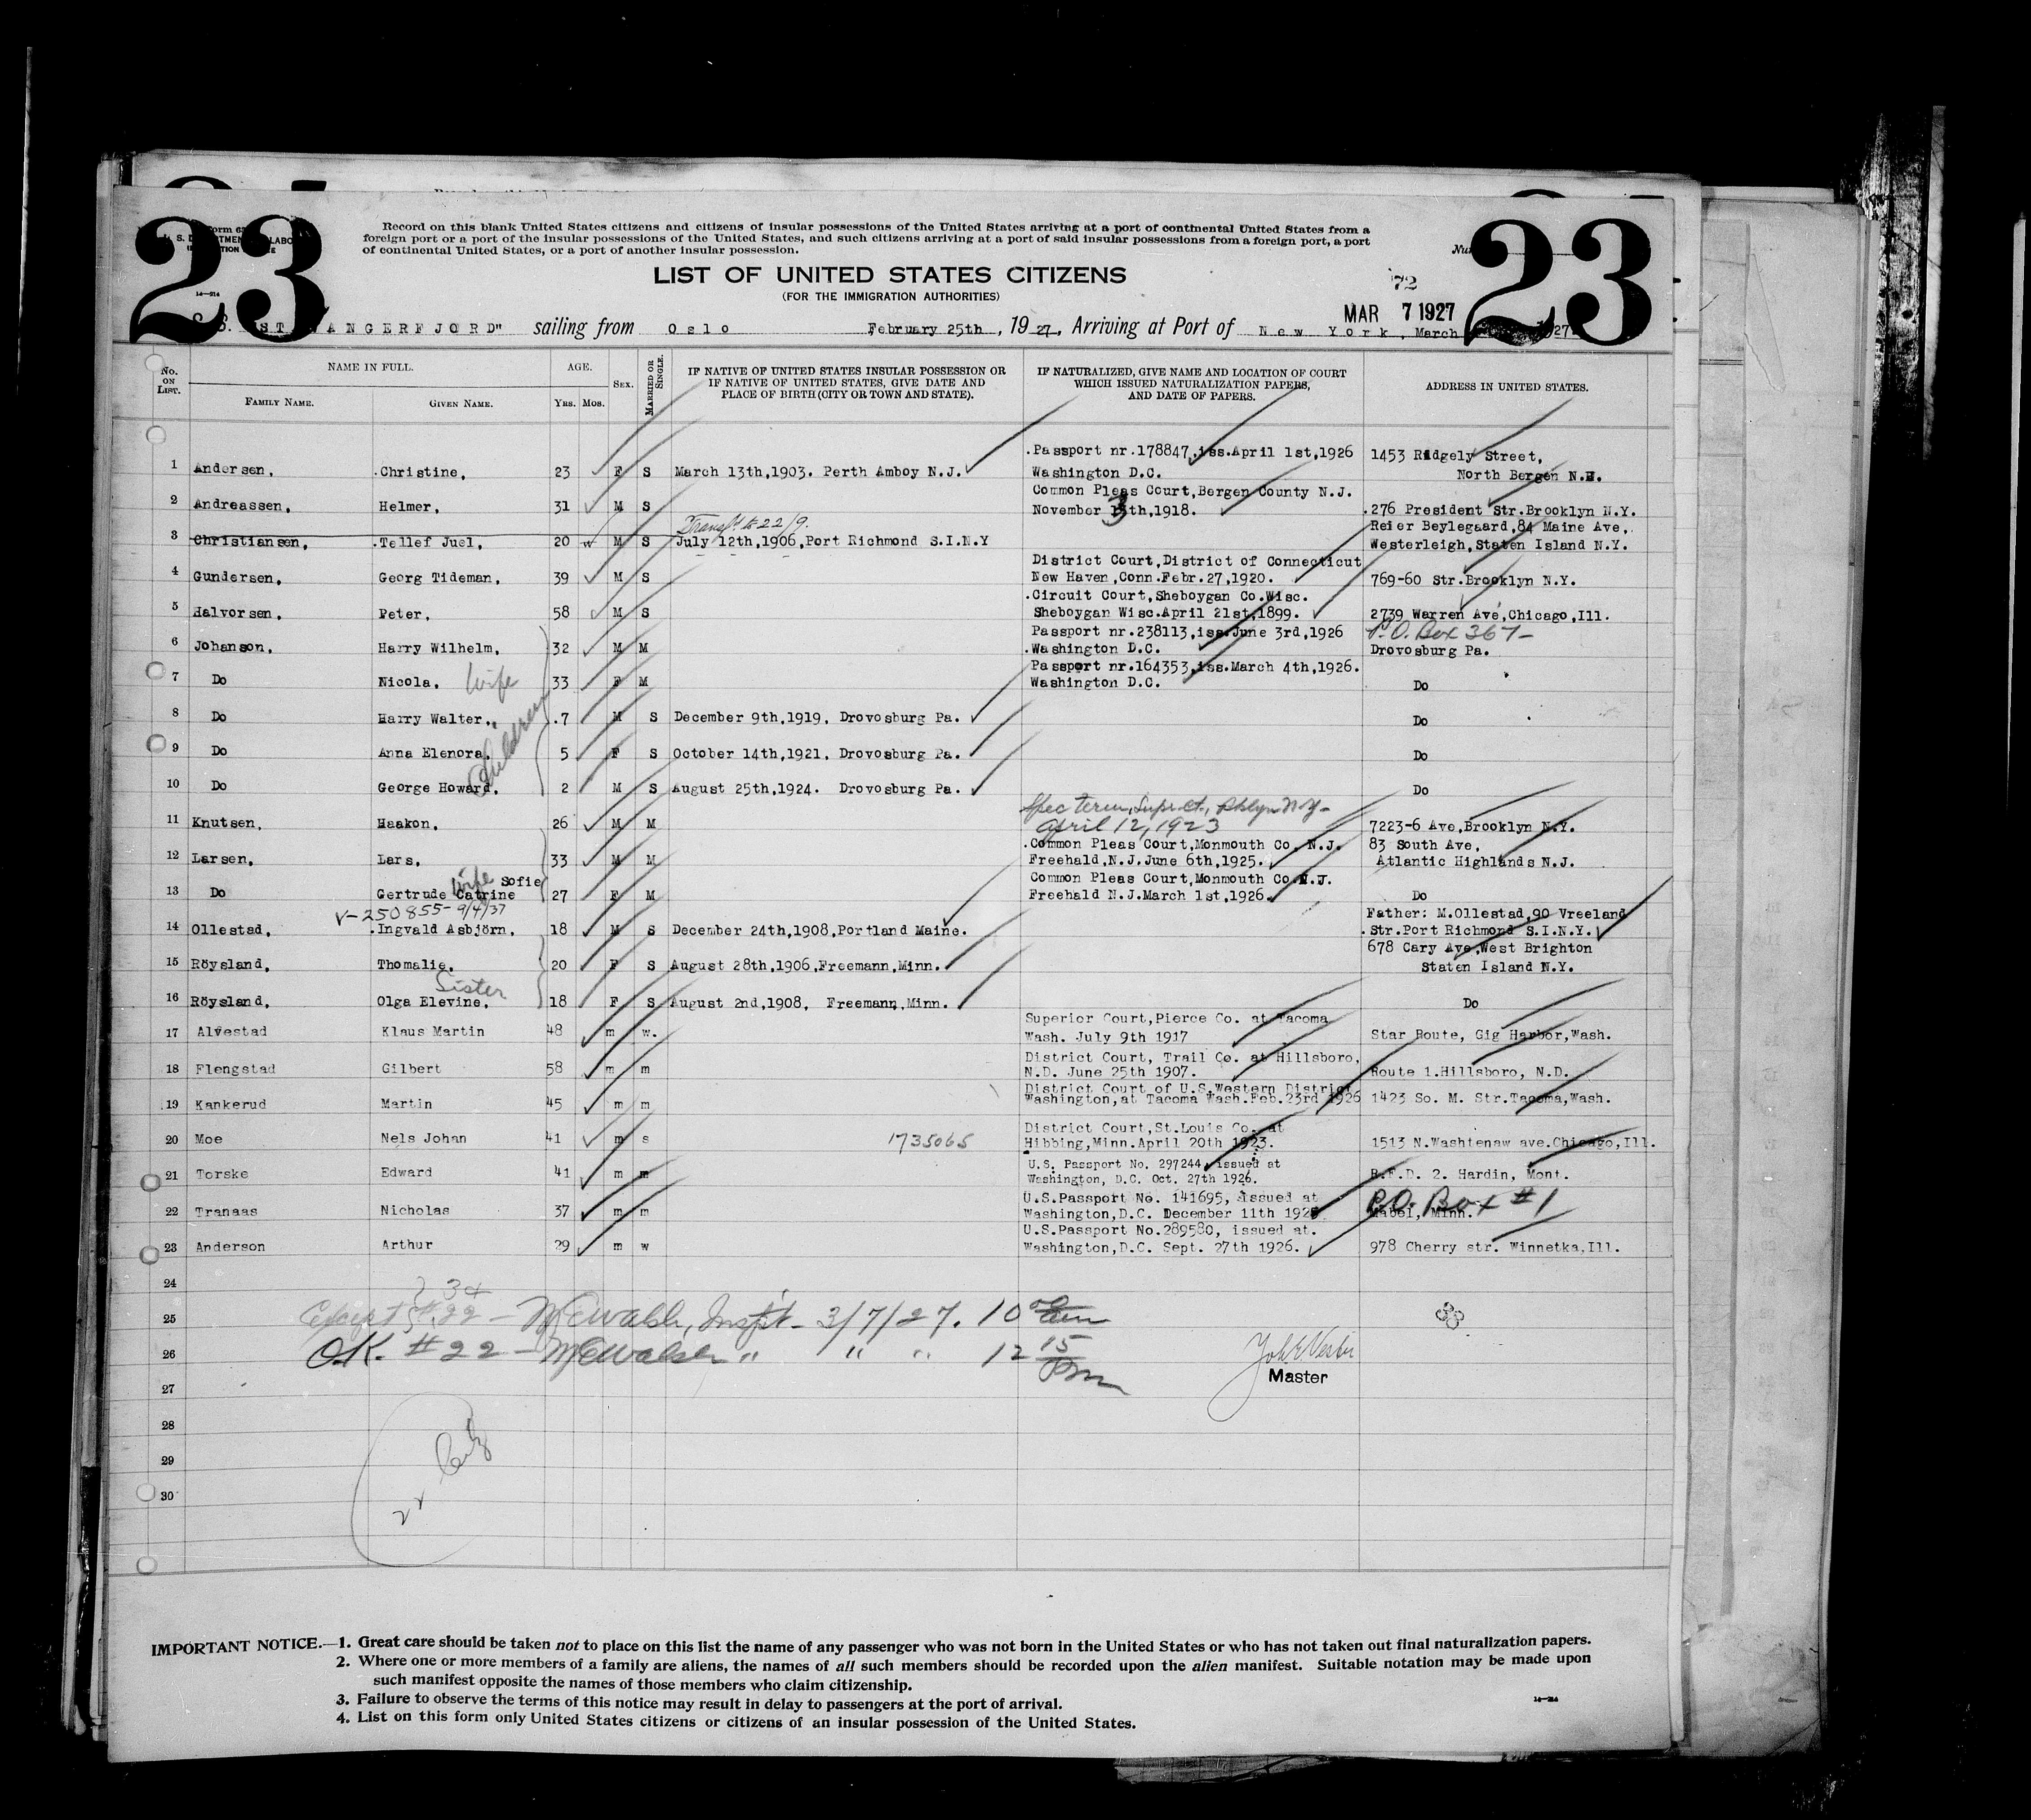 23
23
Record on this blank United States citizens and citizens of insular possessions of the United States arriving at a port of continental United States from a
foreign port or a port of the insular possessions of the United States, and such citizens arriving at a port of said insular possessions from a foreign port, a port
of continental United States, or a port of another insular possession.
LIST OF UNITED STATES CITIZENS
(FOR THE IMMIGRATION AUTHORITIES)
72
MAR 7 1927
sailing from Oslo February 25th, 1927, Arriving at Port of New York, March
No. ON LIST.
NAME IN FULL.
FAMILY NAME.
GIVEN NAME.
AGE.
YRS. MOS.
SEX.
MARRIED OR SINGLE.
IF NATIVE OF UNITED STATES INSULAR POSSESSION OR
IF NATIVE OF UNITED STATES, GIVE DATE AND
PLACE OF BIRTH (CITY OR TOWN AND STATE).
IF NATURALIZED, GIVE NAME AND LOCATION OF COURT
WHICH ISSUED NATURALIZATION PAPERS,
AND DATE OF PAPERS.
ADDRESS IN UNITED STATES.
Passport nr.178847,iss.April 1st,1926 1453 Ridgely Street,
1 Andersen, .Christine, 23 F S March 13th,1903. Perth Amboy N.J. Washington D.C. North Bergen N.H.
Common Pleas Court,Bergen County N.J.
2 Andreassen, Helmer, 31 M S November 3th,1918. .276 President Str.Brooklyn N.Y.
Transf'd to 22/9. Reier Beylegaard,84 Maine Ave,
3 Christiansen, .Tellef Juel, 20 M S July 12th,1906,Port Richmond S.I.N.Y Westerleigh,Staten Island N.Y.
District Court,District of Connecticut
4 Gundersen, Georg Tideman, 39 M S New Haven,Conn.Febr.27,1920. 769-60 Str.Brooklyn N.Y.
.Circuit Court,Sheboygan Co.Wisc.
5 Halvorsen, Peter, 58 M S Sheboygan Wisc.April 21st,1899. 2739 Warren Ave,Chicago,Ill.
Passport nr.238113,iss.June 3rd,1926 P.O. Box 367-
6 Johanson, Harry Wilhelm, 32 M M .Washington D.C. Drovosburg Pa.
Passport nr.164353,iss.March 4th,1926.
7 Do Nicola, Wife 33 F M Washington D.C. Do
8 Do Harry Walter, .7 M S December 9th,1919, Drovosburg Pa. Do
Children
9 Do Anna Elenora, 5 F S October 14th,1921, Drovosburg Pa. Do
10 Do George Howard, 2 M S August 25th,1924. Drovosburg Pa. Do
Spec term, Supr. Ct., Bklyn N.Y-
11 Knutsen, Haakon, 26 M M April 12, 1923 7223-6 Ave,Brooklyn N.Y.
.Common Pleas Court,Monmouth Co. N.J. 83 South Ave,
12 Larsen, Lars, 33 M M Freehald,N.J.June 6th,1925. Atlantic Highlands N.J.
Wife Sofie Common Pleas Court,Monmouth Co N.J.
13 Do Gertrude Catrine 27 F M Freehald N.J.March 1st,1926. Do
V-250855-9/4/37 Father: M.Ollestad,90 Vreeland
14 Ollestad, .Ingvald Asbjörn, 18 M S December 24th,1908,Portland Maine. .Str.Port Richmond S.I.N.Y.
678 Cary Ave,West Brighton
15 Röysland, Thomalie, 20 F S August 28th,1906,Freemann,Minn. Staten Island N.Y.
Sister
16 Röysland, Olga Elevine, 18 F S August 2nd,1908, Freemann,Minn. Do
Superior Court,Pierce Co. at Tacoma
17 Alvestad Klaus Martin 48 m w. Wash. July 9th 1917 Star Route, Gig Harbor,Wash.
District Court, Trail Co. at Hillsboro,
18 Flengstad Gilbert 58 m m N.D. June 25th 1907. Route 1.Hillsboro, N.D.
District Court of U.S.Western District
19 Kankerud Martin 45 m m Washington,at Tacoma Wash.Feb.23rd 1926 1423 So. M. Str.Tacoma,Wash.
District Court,St.Louis Co. at
20 Moe Nels Johan 41 m s 1735065 Hibbing,Minn.April 20th 1923. 1513 N.Washtenaw ave.Chicago,Ill.
U.S. Passport No. 297244, issued at
21 Torske Edward 41 m m Washington, D.C. Oct. 27th 1926. R.F.D. 2. Hardin, Mont.
U.S.Passport No. 141695, issued at P.O. Box #1
22 Tranaas Nicholas 37 m m Washington,D.C. December 11th 1925 Mabel, Minn.
U.S.Passport No.289580, issued at.
23 Anderson Arthur 29 m w Washington,D.C. Sept. 27th 1926. 978 Cherry str. Winnetka,Ill.
24
25 Except #22 - McWalsh, Inspt - 3/7/27. 10 am
26 O.K. #22 - McWalsh " " " 12 15 Pm
Master
27
28
29
30
IMPORTANT NOTICE.—1. Great care should be taken not to place on this list the name of any passenger who was not born in the United States or who has not taken out final naturalization papers.
2. Where one or more members of a family are aliens, the names of all such members should be recorded upon the alien manifest. Suitable notation may be made upon
such manifest opposite the names of those members who claim citizenship.
3. Failure to observe the terms of this notice may result in delay to passengers at the port of arrival.
4. List on this form only United States citizens or citizens of an insular possession of the United States.
14—214